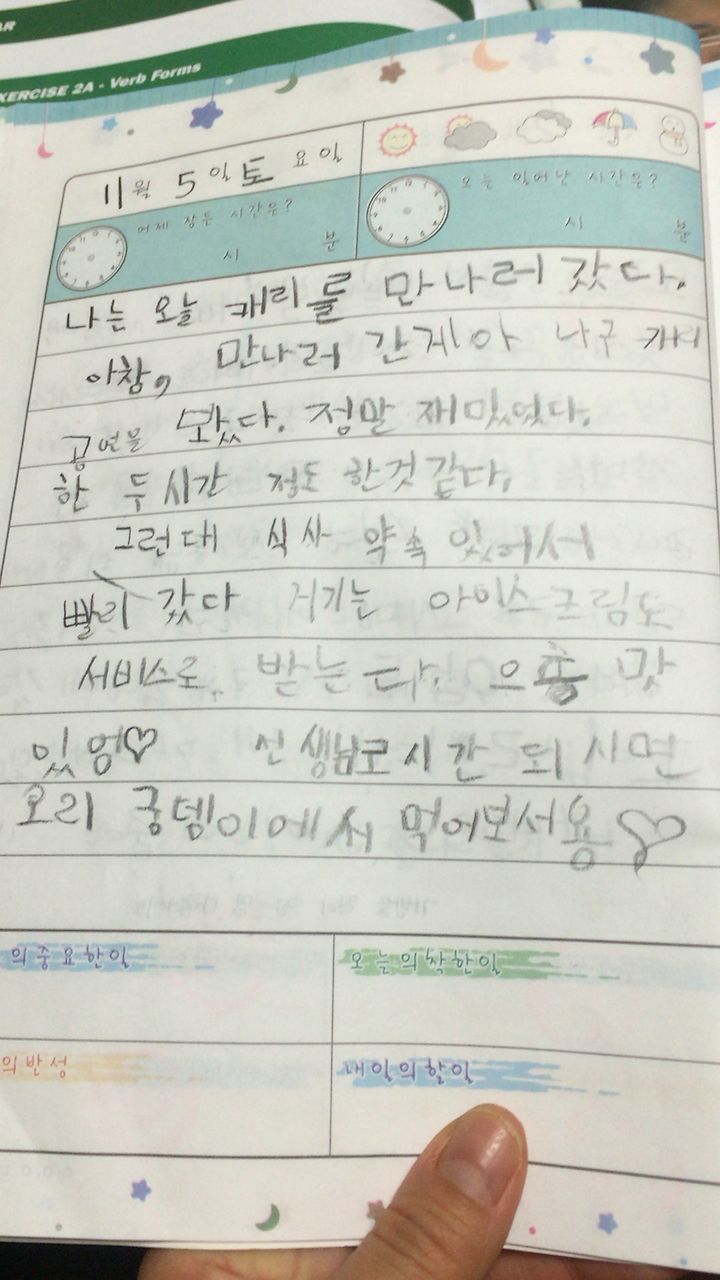 AR
EXERCISE 2A - Verb Forms
11월 5일 토요일
어제 잠든 시간은?
시 분
오늘 일어난 시간은?
시 분
나는 오늘 캐리를 만나러 갔다.
아참, 만나러 간게아 나구 캐리
공연을 봤다. 정말 재밌었다.
한 두시간 정도 한것 같다.
그런대 식사 약속 있어서
빨리 갔다 거기는 아이스크림도
서비스로 받는다. 으흥 맛
있엉♡ 선생님도 시간 되시면
요리 궁뎅이에서 먹어보서용♡
의 중요한일
오늘의 착한일
의 반성
내일의 할일